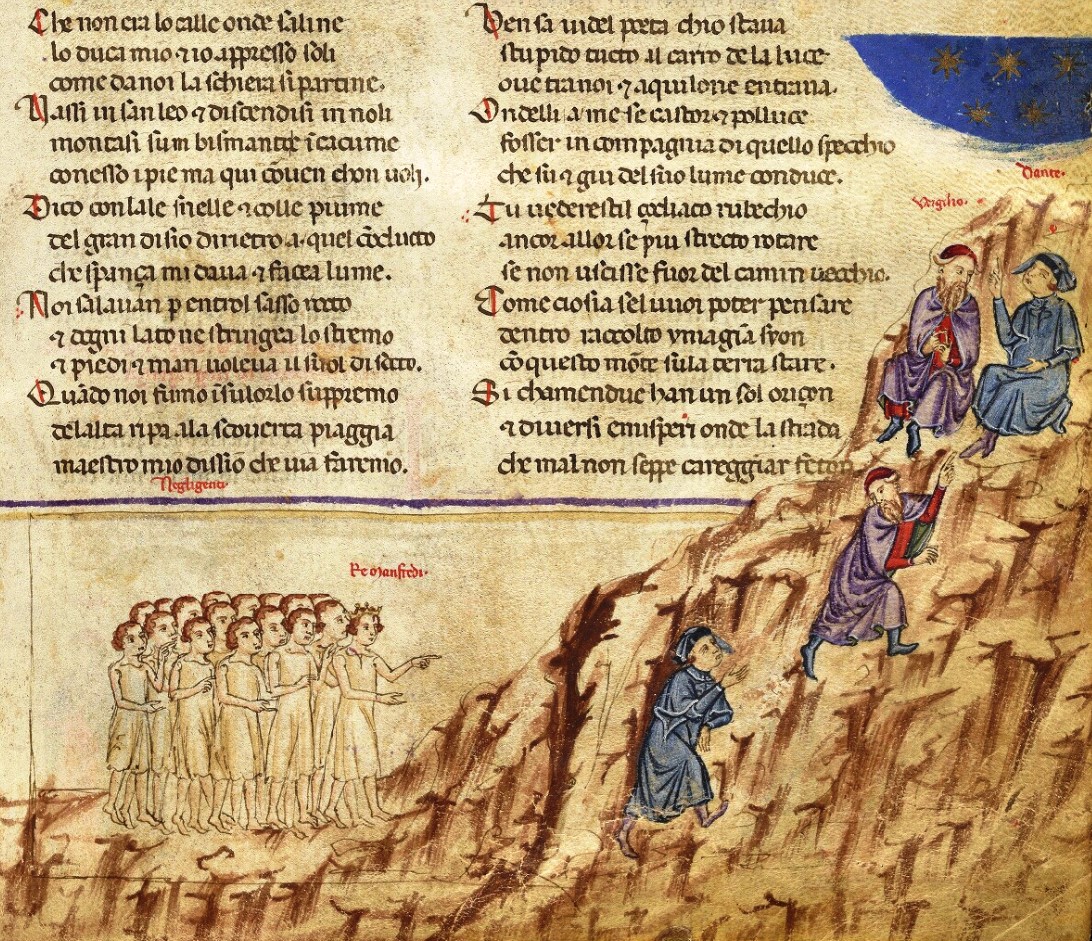 Che non era lo calle onde saline
lo duca mio ⁊ io appresso soli
come da noi la schiera si partine.
Vassi in san leo ⁊ discendisi in noli
montasi sum bismantoe i cacume
con esso i pie ma qui cōuen chon uoli.
Dico con lale snelle ⁊ colle piume
del gran disio dirietro a quel cōducto
che sperança mi daua ⁊ facea lume.
Noi salauan p entrol sasso rocto
⁊ dogni lato ne stringea lo stremo
⁊ piedi ⁊ man uoleua il suol di socto.
Quādo noi fumo ī sulorlo suppremo
delalta ripa ala scouerta piaggia
maestro mio dissio che uia faremo.
Negligenti
Ben sa uidel poeta chio staua
stupido tucto al carro de la luce
oue tra noi ⁊ aquilone entraua.
Ondelli a me se castor ⁊ polluce
fosser in compagnia di quello specchio
che su ⁊ giu del suo lume conduce.
Tu uederestil çodiaco rubechio
ancor allorse piu strecto rotare
se non uscisse fuor del camin uecchio.
Come cio sia sel uuoi poter pensare
dentro raccolto ymagīa syon
cō questo mōte sula terra stare.
Si chamendue han un sol oriçon
⁊ diuersi emisperi onde la strada
che mal non seppe careggiar feton
Dante.
Vergilio.
Re Manfredi.